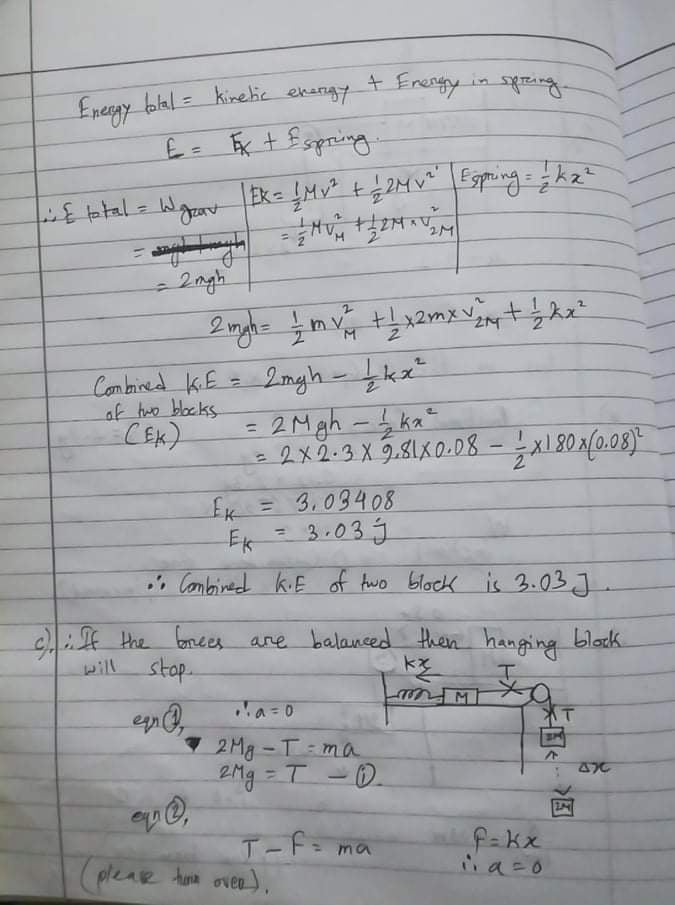 Energy total = kinetic energy + Energy in spring.
E = Ek + Espring.
∴ E total = Wgrav | EK = ½Mv² + ½2Mv² | Espring = ½kx²
= = ½Mv²M + ½2M×v²2M
= 2mgh
2mgh = ½mv²M + ½×2m×v²2M + ½kx²
Combined K.E = 2mgh - ½kx²
of two blocks
(EK) = 2Mgh - ½kx²
= 2×2.3×9.81×0.08 - ½×180×(0.08)²
EK = 3.03408
EK = 3.03 J
∴ Combined K.E of two block is 3.03 J.
c). ∴ If the forces are balanced then hanging block
will stop.
kx T
M
T
2M
Δx
2M
eqn ①, ∵ a = 0
2Mg - T = ma
2Mg = T - ①.
eqn ②,
T - f = ma f = kx
∵ a = 0
(please turn over).